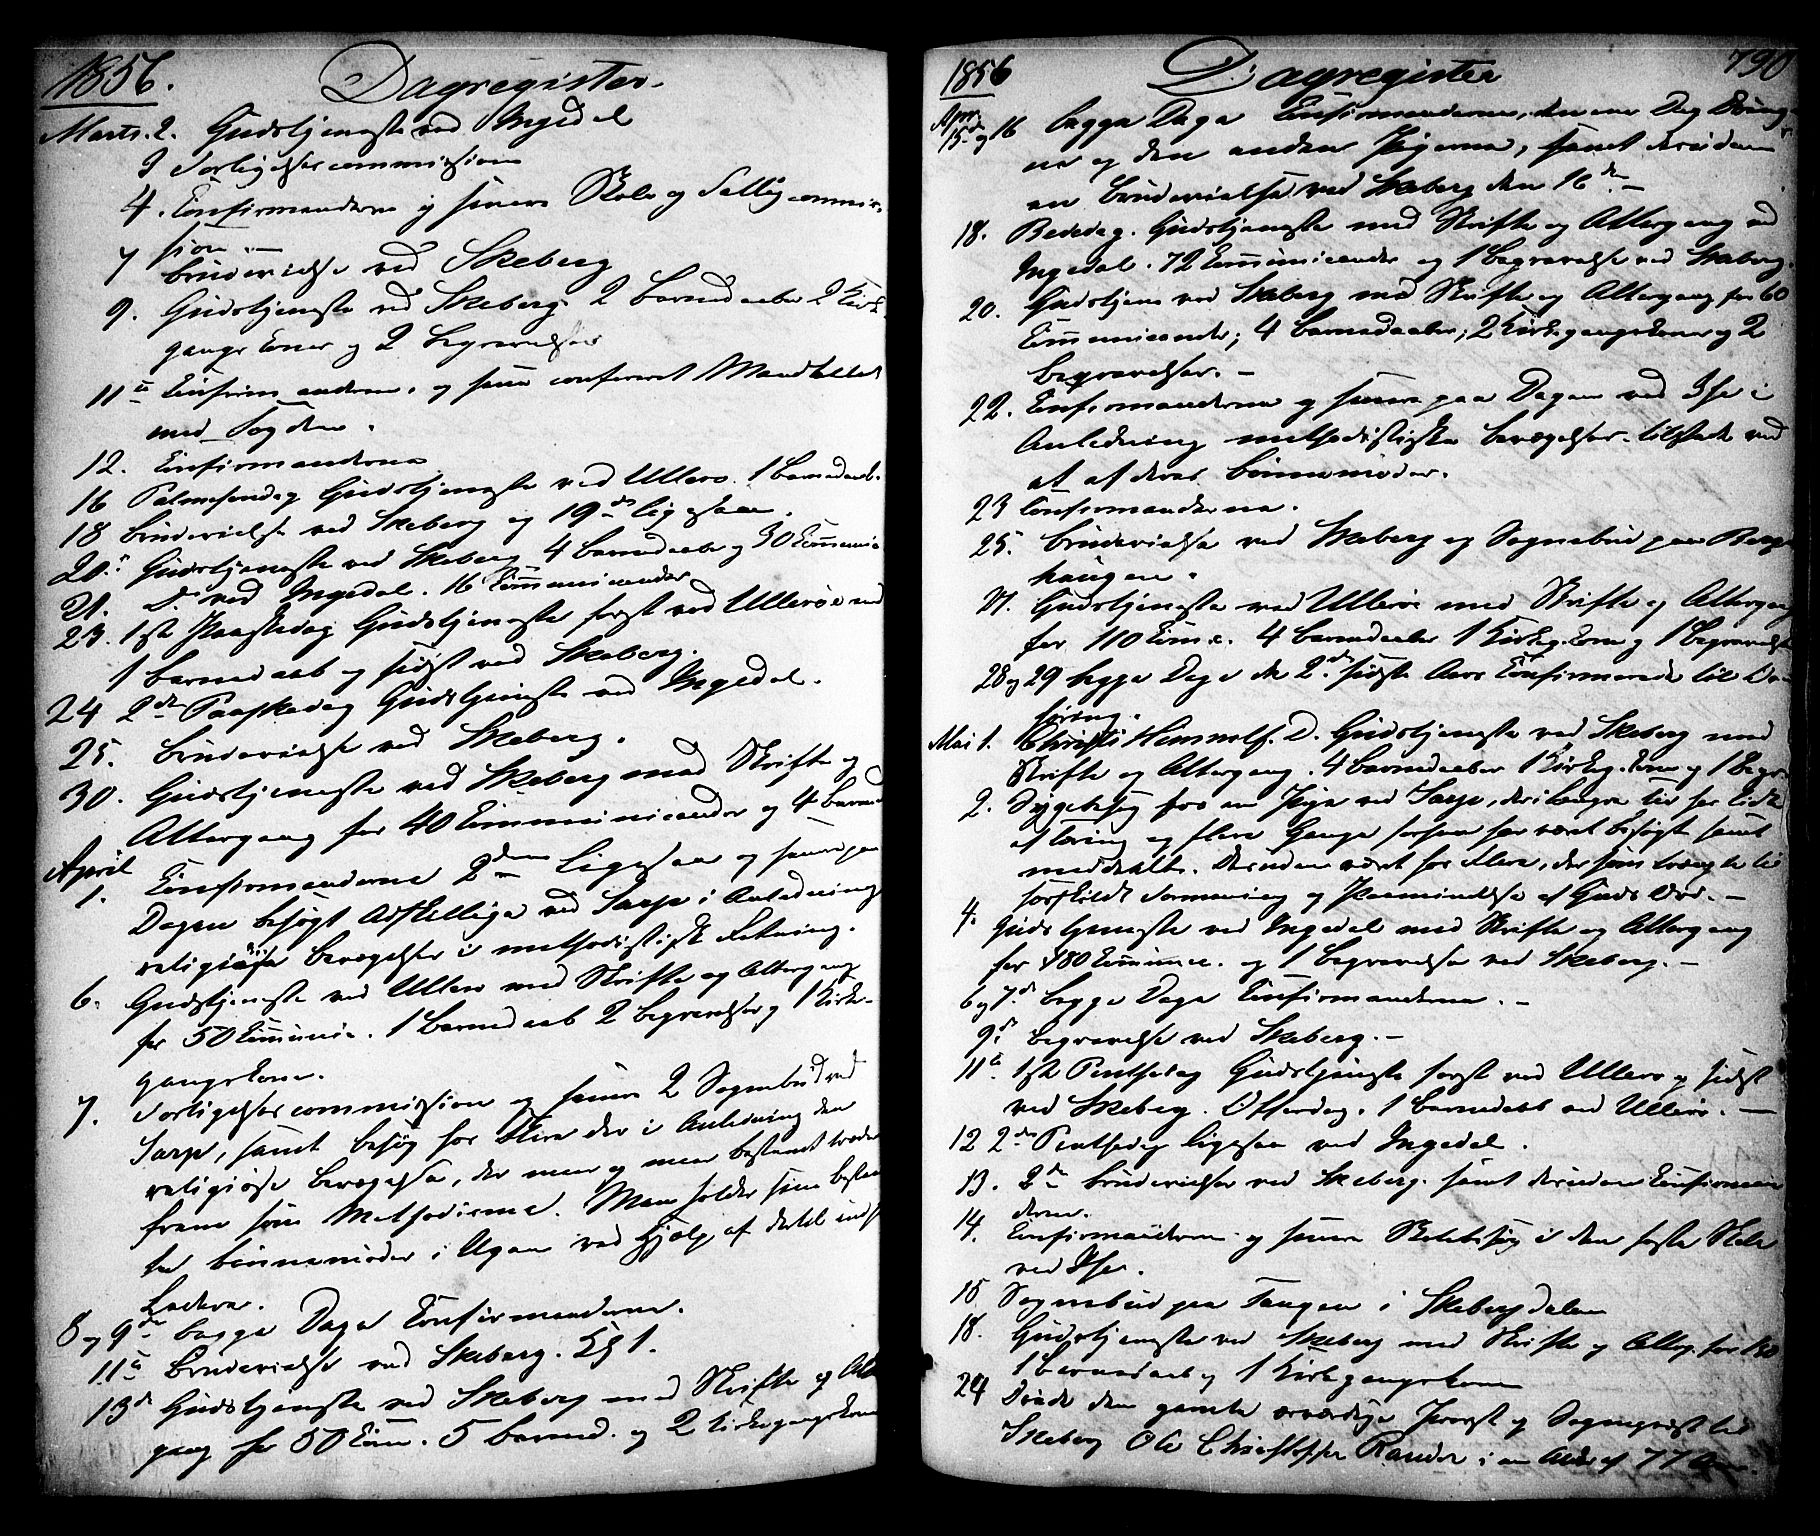 1856. Dagregister.
Marts. 2. Gudstjeneste ved Ingedal
3 Forligelsescommission
4. Confirmanderne og senere Skole og Fattigcommis-
sion. —
7 Brudevielse ved Skeberg
9. Gudstjeneste ved Skeberg. 2 Barnedaaber 2 Kirke-
gangskoner og 2 Begravelser
11te Confirmanderne. og senere confereret Mandtallet
med
12. Confirmanderne
16 Palmesøndag Gudstjeneste ved Ullerø. 1 Barnedaab.
18 Brudevielse ved Skeberg og 19de ligesaa.
20. Gudstjeneste ved Skeberg 4 Barnedaabe og 30 Communic
21. Do ved Ingedal. 16 Communicander
23. 1st Paaskedag Gudstjeneste først ved Ullerøe med
1 Barnedaab og sidst ved Skeberg.
24 2den Paaskedag Gudstjeneste ved Ingedal.
25. Brudevielse ved Skeberg.
30. Gudstjeneste ved Skeberg med Skrifte og
Altergang for 40 Communicander og 4 Barned
April
1. Confirmanderne 2den Ligesaa og senere paa
Dagen besøgt Adskillige ved Sarp i Anledning
religiøse Bevægelser i methodistisk Retning.
6. Gudstjeneste ved Ullerø med Skrifte og Altergang
for 50 Communic. 1 Barnedaab 2 Begravelser og 1 Kirke-
gangskone.
7. Forligelsescommission og senere 2 Sognebud ved
Sarp, samt besøg for Flere der i Anledning den
religiøse Bevægelse, der meer og meer bestemt træder
frem som Methodisme. Man holder sine bestem
te Bønnemøder i Ugen ved Hjelp af dertil indst
Ledere.
8 og 9de begge Dage Confirmanderne.
11te Brudevielse ved Skeberg. 1.
13de Gudstjeneste ved Skeberg med Skrifte og Alter
gang for 50 Comm. 5 Barned. og 2 Kirkegangskone
1856 Dagregister 790
Apr.
15de og 16 begge Dage Confirmanderne, den ene Dag Dreng-
ne og den anden Pigerne, samt desuden
en Brudevielse ved Skeberg den 16de —
18. Bededag. Gudstjeneste med Skrifte og Altergang ved
Ingedal. 72 Communicander og 1 Begravelse ved Skeberg.
20. Gudstjene ved Skeberg med Skrifte og Altergang for 60
Communicanter; 4 Barnedaaber; 2 Kirkegangskoner og 2
Begravelser. —
22. Confirmanderne og senere paa Dagen ved Ise i
Anledning methodistiske Bevægelser tilstede ved
et af deres Bønnemøder.
23 Confirmanderne.
25. Brudevielse ved Skeberg og Sognebud paa Berg-
haugen.
27. Gudstjeneste ved Ullerøe med Skrifte og Altergang
for 110 Comc. 4 Barnedaaber 1 Kirkeg.kone og 1 Begravelse
28 og 29 begge Dage de 2de sidste Aars Confirmerede til
Mai 1. Christi Himmelf. D. Gudstjeneste ved Skeberg med
Skrifte og Altergang. 4 Barnedaaber 1 Kirkeg. kone og 1 Begr
2. Sygebesøg hos en Pige ved Sarp, der i længere tid har
og flere Gange før har været besøgt samt
meddelt. Desuden været hos Flere, der som trængte til
særskildt Formaning og Paamindelse af Guds Ord. —
4. Guds tjeneste ved Ingedal med Skrifte og Altergang
for 180 Commc. og 1 Begravelse ved Skeberg. —
6 og 7de begge Dage Confirmanderne. —
9de Begravelse ved Skeberg. —
11te 1ste Pentsedag Gudstjeneste først ved Ullerø og sidst
ved Skeberg. Offerdag. 1 Barnedaab ved Ullerø. —
12 2den Pentsedag ligesaa ved Ingedal.
13. 2de Brudevielser ved Skeberg. samt desuden Confirman
derne.
14. Confirmanderne og senere Skolebesøg i den faste Skole
ved Ise.
15 Sognebud paa Tangen i Skebergdalen
18. Gudstjeneste ved Skeberg med Skrifte og Alterg. for 130
1 Barnedaab og 1 Kirkegangskone
24 Døde den gamle ærværdige Provst og Sognepræst til
Skeberg Ole Christopher Rander i en Alder af 77 Aar.